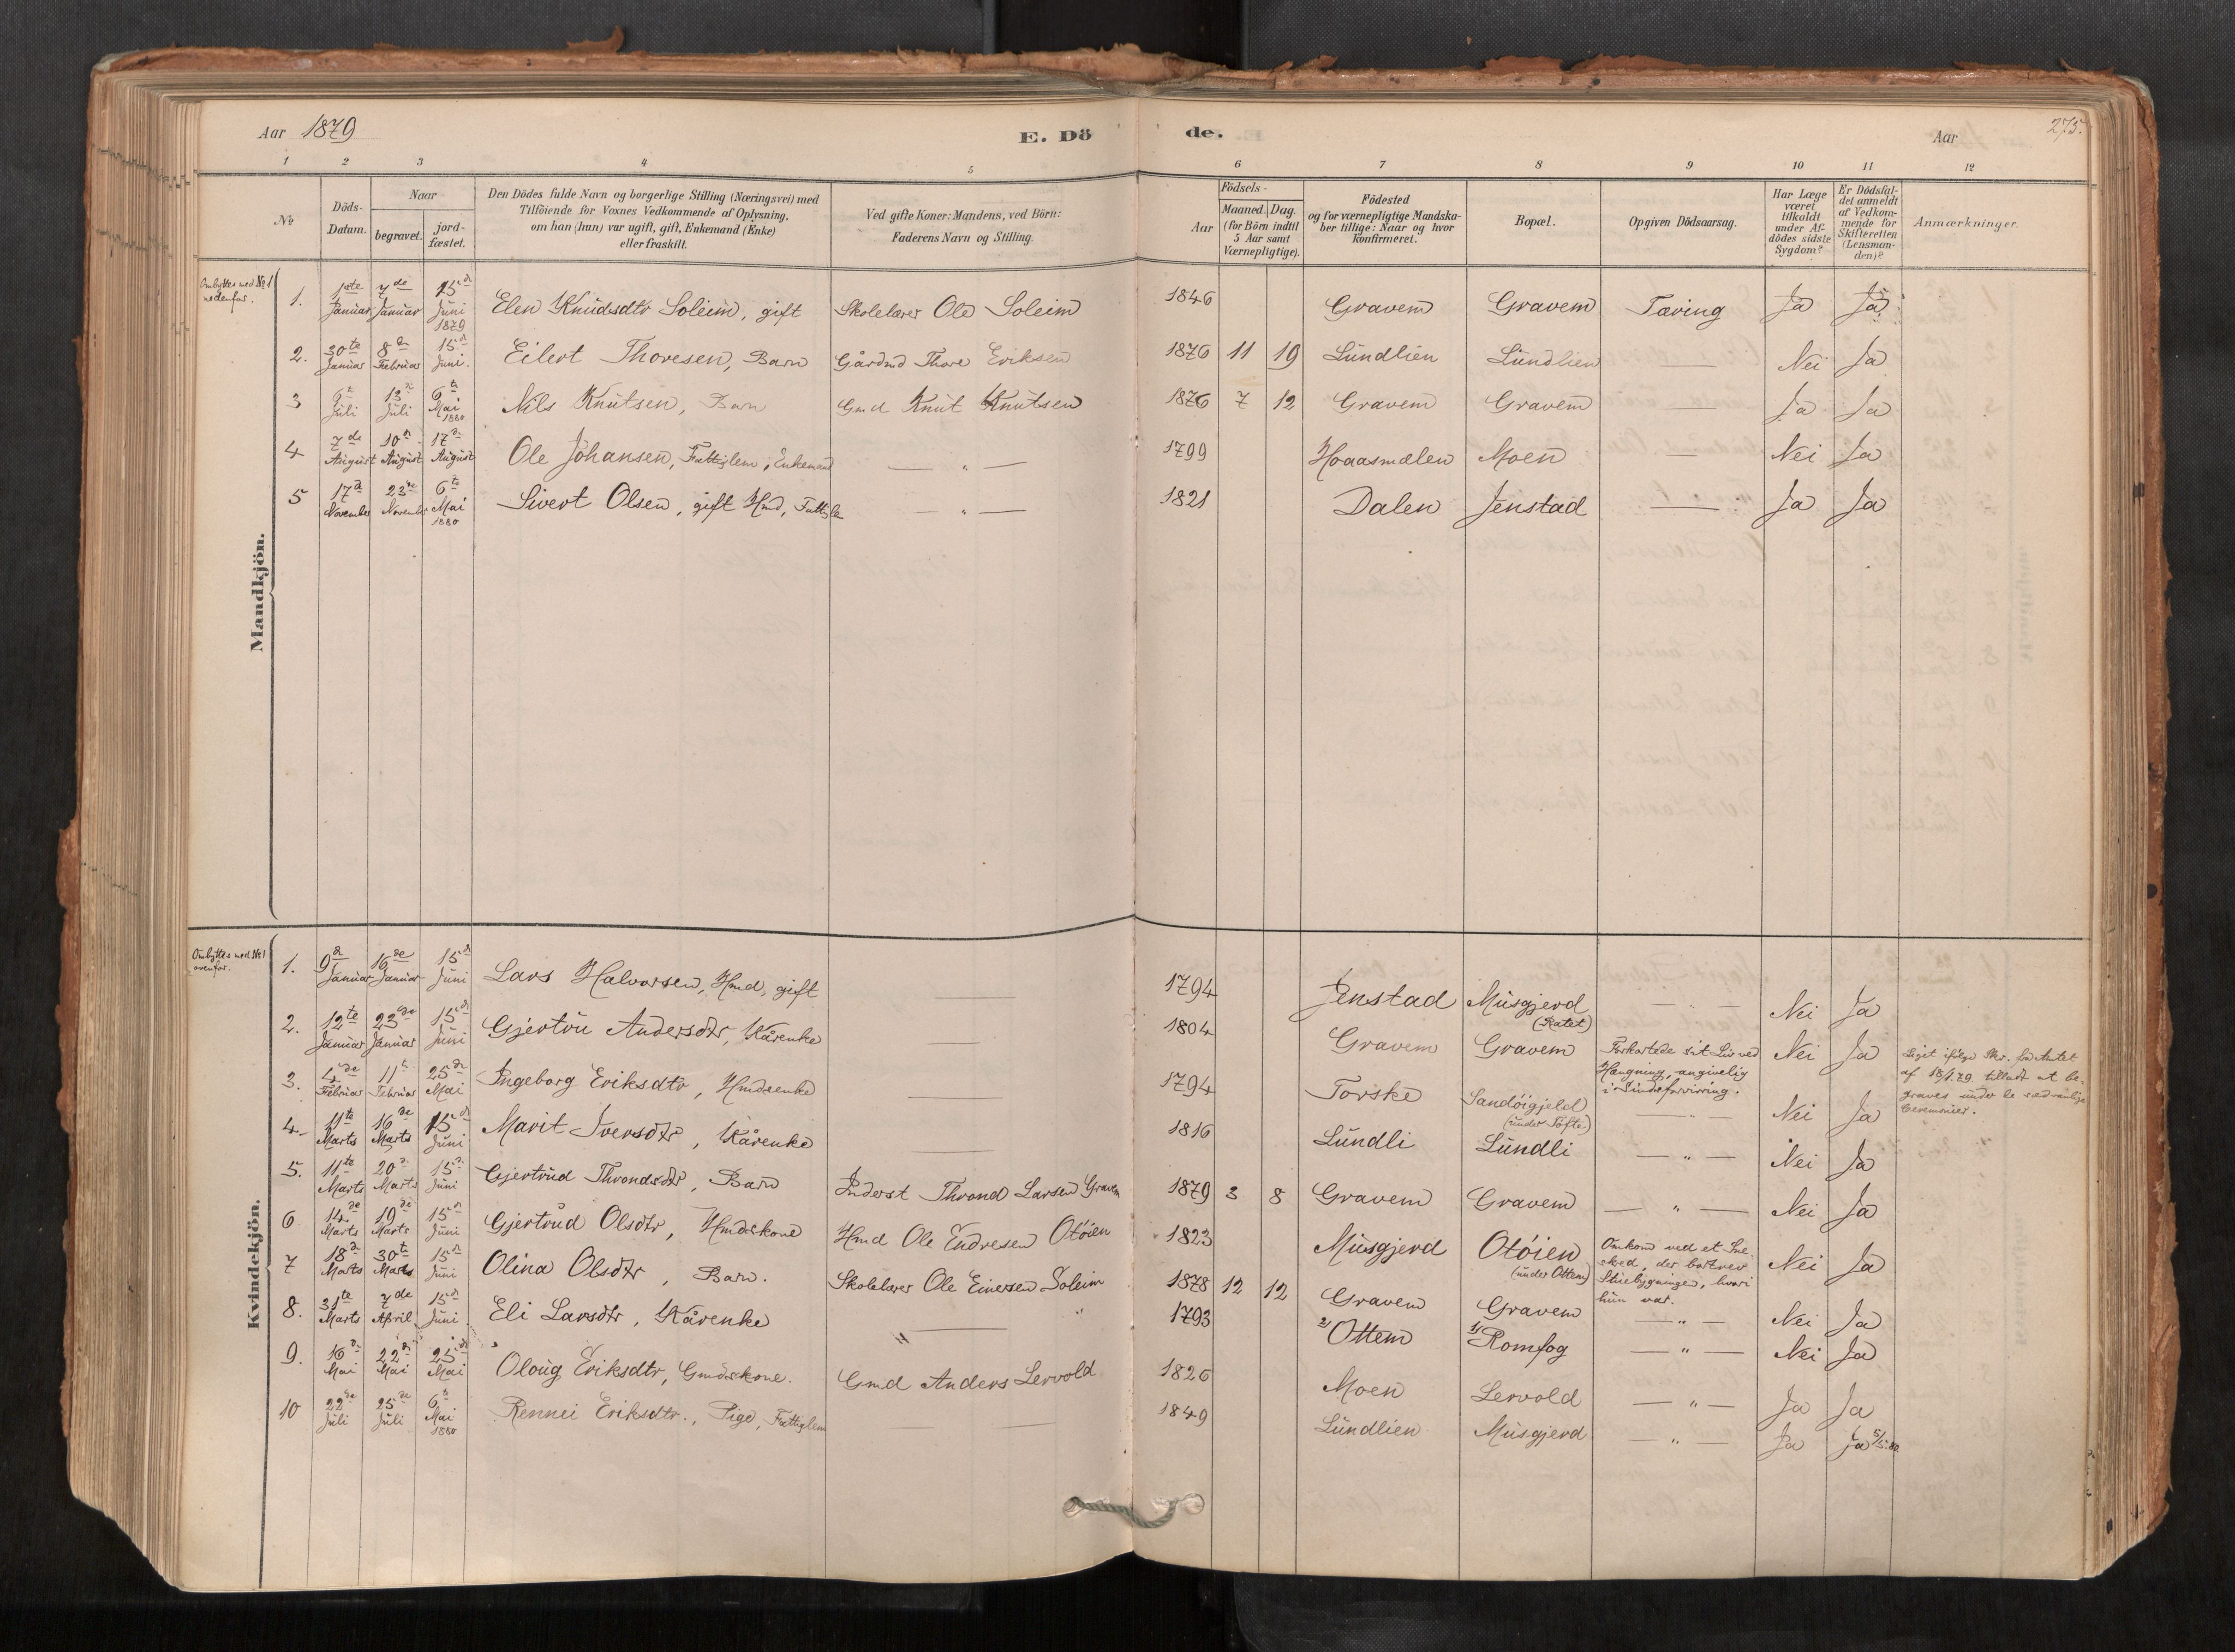 Aar 1879
E. Dö
de.
Aar
275.
1 2 3 4 5 6 7 8 9 10 11 12
No
Döds-
Datum.
Naar
begravet.
jord-
fæstet.
Den Dödes fulde Navn og borgerlige Stilling (Næringsvei) med
Tilföiende for Voxnes Vedkommende af Oplysning,
om han (hun) var ugift, gift, Enkemand (Enke)
eller fraskilt.
Ved gifte Koner: Mandens, ved Börn:
Faderens Navn og Stilling.
Födsels-
Aar
Maaned. Dag.
(for Börn indtil
5 Aar samt
Værnepligtige).
Födested
og for værnepligtige Mandska-
ber tillige: Naar og hvor
konfirmeret.
Bopæl.
Opgiven Dödsaarsag.
Har Læge
været
tilkaldt
under Af-
dödes sidste
Sygdom?
Er Dödsfal-
det anmeldt
af Vedkom-
mende for
Skifteretten
(Lensman-
den)?
Anmærkninger.
Mandkjön.
Ombyttes med No 1
nedenfor.
1. 1ste Januar 7de Januar 15de Juni 1879 Elen Knudsdtr Soleim, gift Skolelærer Ole Soleim 1846 Gravem Gravem Tæring Ja Ja
2. 30te Januar 8de Februar 15de Juni. Eilert Thoresen, Barn Gårdmd Thore Eriksen 1876 11 19 Lundlien Lundlien — Nei Ja
3 6te Juli 13de Juli 6te Mai 1880 Nils Knutsen, Barn Gmd Knut Knutsen 1876 7 12 Gravem Gravem — Ja Ja
4 7de August 10de August 17de August Ole Johansen, Fattiglem, Enkemand — " — 1799 Hoaasmælen Moen — Nei Ja
5 17de November 23de November 6te Mai 1880 Sivert Olsen, gift Hmd, Fattiglem — " — 1821 Dalen Jenstad — Ja Ja
Kvindekjön.
Ombyttes med No 1
ovenfor.
1. 9de Januar 16de Januar 15de Juni Lars Halvorsen, Hmd, gift — 1794 Jenstad Musgjerd (Ratet) — " — Nei Ja
2. 12te Januar 23de Januar 15de Juni Gjertru Andersdtr, Kårenke — 1804 Gravem Gravem Forkortede sit Liv ved
Hængning, angivelig
i Sindsforvirring. Nei Ja Liget ifølge Skr. fra Amtet
af 18/1.79 tilladt at be-
graves under de sædvanlige
Ceremonier.
3. 4de Februar 11te Februar 25de Mai Ingeborg Eriksdtr, Hmdsenke — 1794 Torske Sandöigjeld (under Tofte) — " — Nei Ja
4. 11te Marts 16de Marts 15de Juni Marit Iversdtr, Kårenke — 1816 Lundli Lundli — " — Nei Ja
5. 11te Marts 20de Marts 15de Juni Gjertrud Throndsdtr, Barn Inderst Thrond Larsen Gravem 1879 3 8 Gravem Gravem — " — Nei Ja
6 14de Marts 19de Marts 15de Juni Gjertrud Olsdtr, Hmdskone Hmd Ole Endresen Otöien 1823 Musgjerd Otöien (under Ottem) Omkom ved et Sne-
skred, der bortrev
Stuebygningen, hvori
hun var. Nei Ja
7 18de Marts 30te Marts 15de Juni Olina Olsdtr, Barn. Skolelærer Ole Einersen Soleim 1878 12 12 Gravem Gravem — " — Nei Ja
8. 31te Marts 7de April 15de Juni Eli Larsdtr, Kårenke — 1793 2) Ottem 1) Romfog — " — Nei Ja
9. 16de Mai 22de Mai 25de Mai Oloug Eriksdtr, Gmdskone. Gmd Anders Lervold 1826 Moen Lervold — " — Ja Ja
10 22de Juli 25de Juli 6te Mai 1880 Rennei Eriksdtr., Pige, Fattiglem — 1849 Lundlien Musgjerd — " — Ja Ja 5/5.80